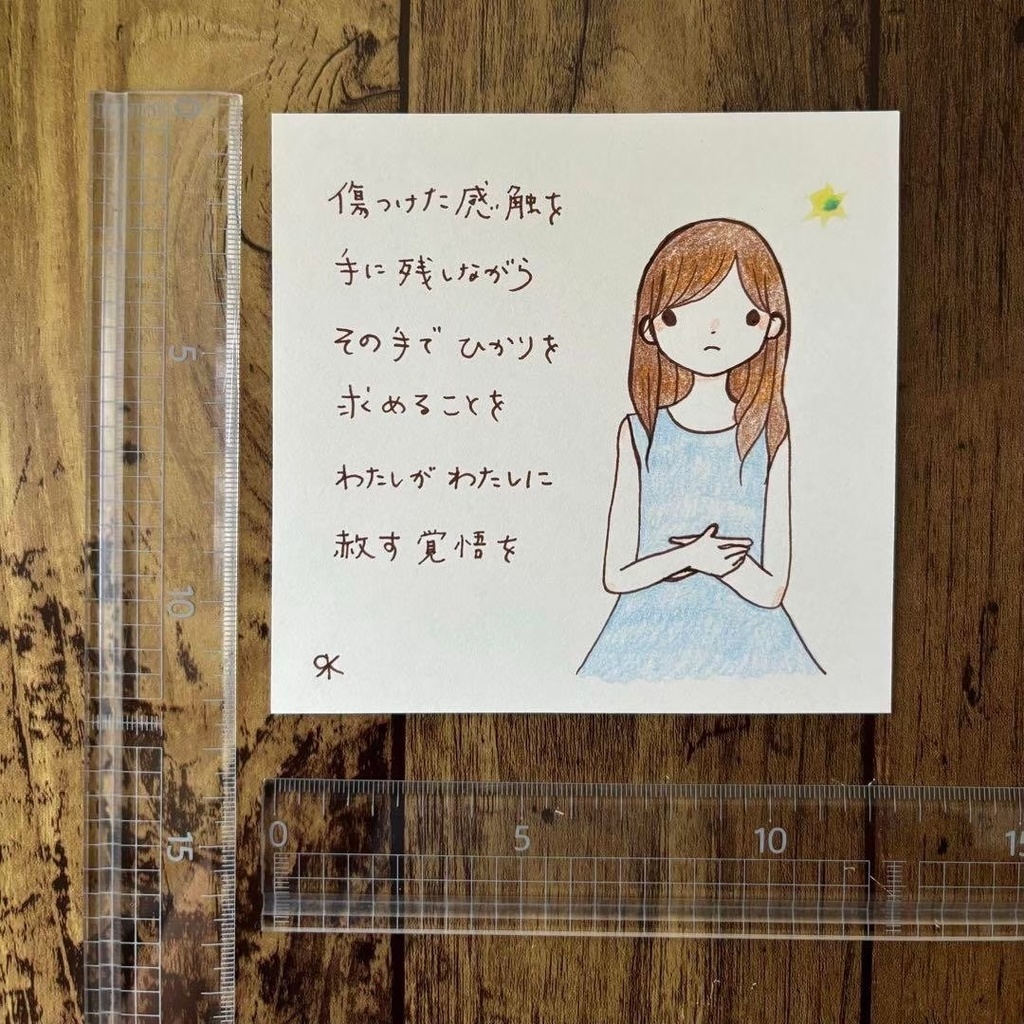 傷つけた感触を
手に残しながら
その手でひかりを
求めることを
わたしが わたしに
赦す覚悟を
5
10
15
0
5
10
15